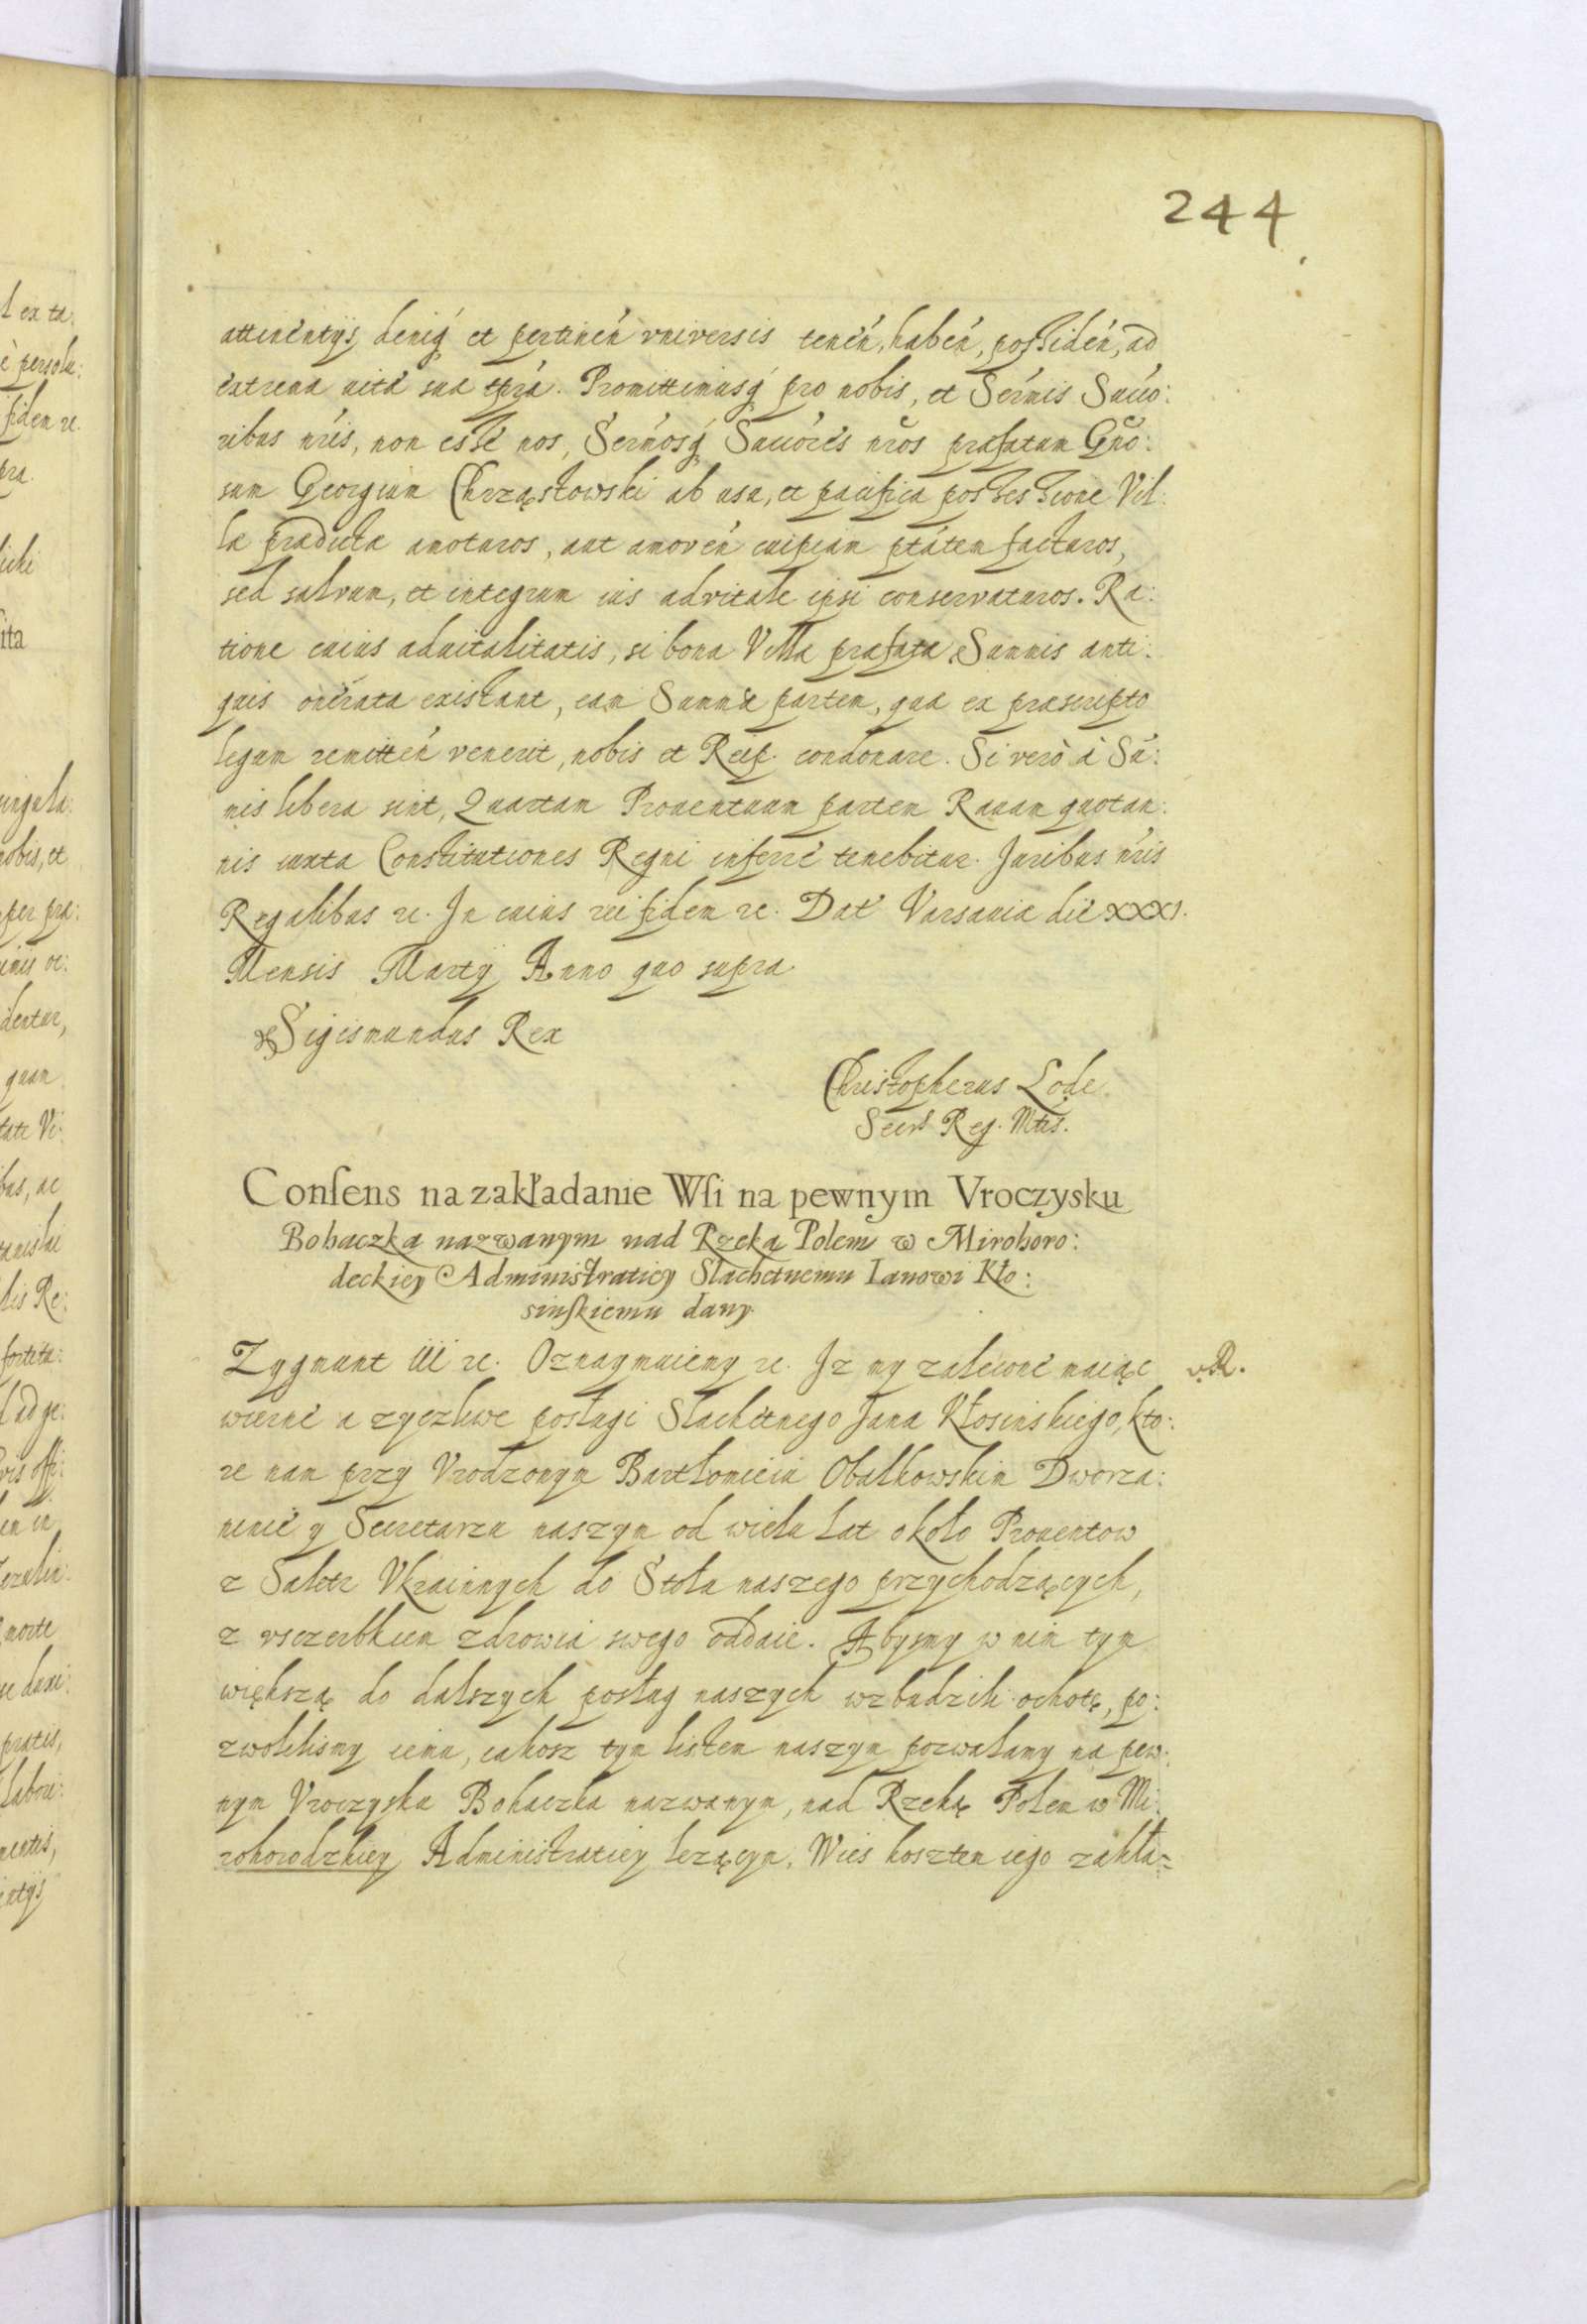 244
attinentys, deniq́ et pertineń vniversis teneń, habeń, possideń, ad
extrema vitæ suæ tpra. Promittimusq́ pro nobis, et Sermis Succo:
ribus nris, non esse nos, Sermosq́ Succores nros præfatum Gno:
sum Georgium Chrząstowski ab usu, et pacifica possessione Vil:
la prædicta amoturos, aut amoveń cuipiam ptatem facturos,
sed salvum, et integrum ius advitale ipsi conservaturos. Ra:
tione cuius advitalitatis, si bona Villa præfata Summis anti:
quis onerata existant, eam Summæ partem, quæ ex præscripto
legum remitteń venerit, nobis et Reip. condonare. Si verò à Sum:
mis libera sint, Quartam Prouentuum partem Rauam quotan:
nis iuxta Constitutiones Regni inferre tenebitur. Juribus nris
Regalibus zc. In cuius rei fidem zc. Dat Varsauiæ die XXXI.
Mensis Marty Anno quo supra.
Sigismundus Rex
Christopherus Lode.
Secrs Reg. Mtis.
Consens na zakładanie Wsi na pewnym Vroczysku
Bohaczka nazwanym nad Rzeką Polem w Mirohoro:
deckiey Administratiey Slachetnemu Ianowi Kło:
sinskiemu dany.
Zygmunt III zc. Oznaymuiemy zc. Iz my zalecone maiąc v.R.
wierne a zyczliwe posługi Slachetnego Jana Kłosinskiego, kto:
re nam przy Vrodzonym Bartłomieiu Obalkowskim Dworza:
ninie y Secretarzu naszym od wielu lat około Prouentow
z Saletr Vkrainnych do Stołu naszego przychodzących,
z vsczerbkiem zdrowia swego oddaie. Abysmy w nim tym
większą do dalszych posług naszych wzbudzili ochotę, po:
zwolilismy iemu, iakosz tym listem naszym pozwalamy na pew:
nym Vroczysku Bohaczka nazwanym, nad Rzeką Polem w Mi:
rohorodzkiey Administratiey lezącym, Wies kosztem iego zakła=